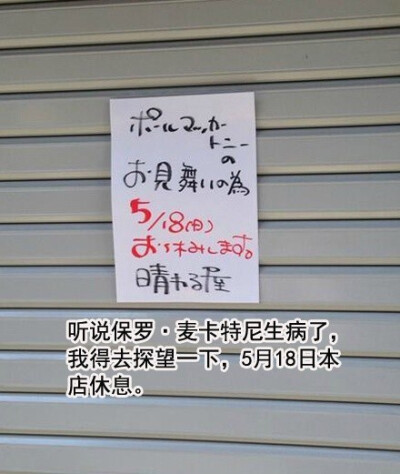 ポールマッカー
トニーの
お見舞いの為
5/18(日)
お休みします。
晴れる屋
听说保罗·麦卡特尼生病了，
我得去探望一下，5月18日本
店休息。